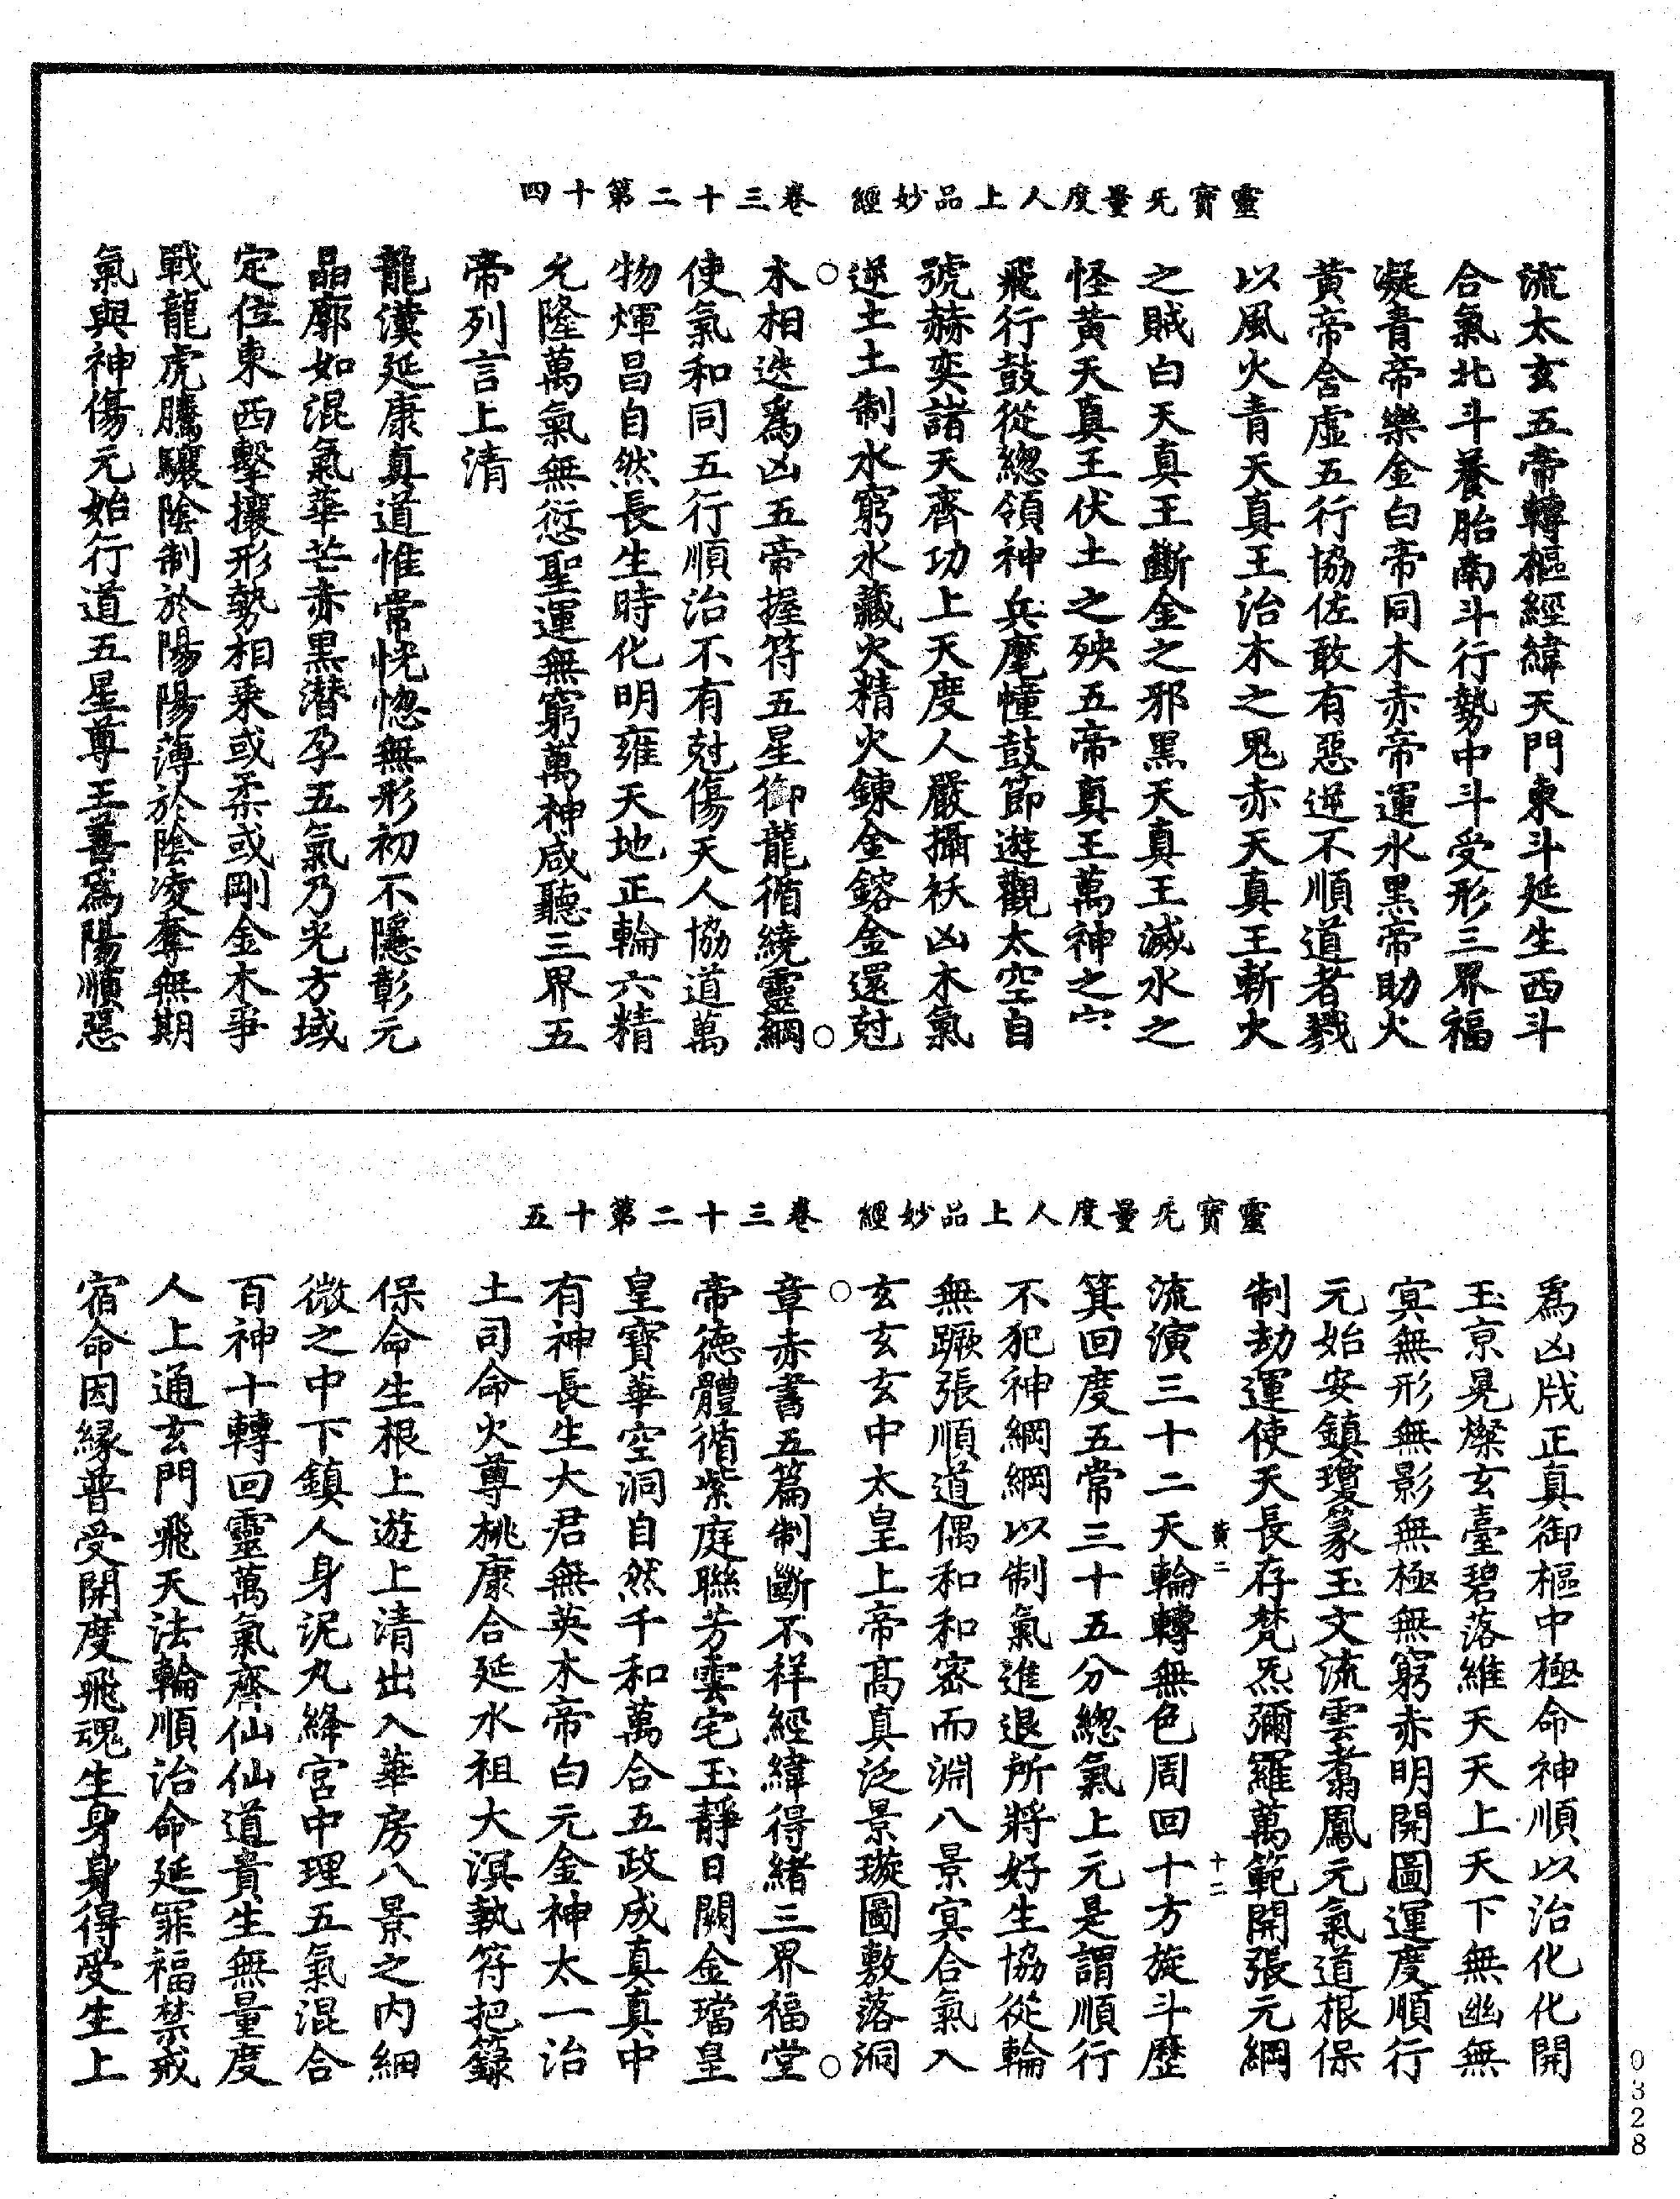 靈寶无量度人上品妙經 卷三十二第十四
流太玄五帝轉樞經緯天門東斗延生西斗
合氣北斗養胎南斗行勢中斗受形三界福
凝青帝樂金白帝同木赤帝運水黑帝助火
黃帝含虛五行協佐敢有惡逆不順道者戮
以風火青天真王治木之鬼赤天真王斬火
之賊白天真王斷金之邪黑天真王滅水之
怪黃天真王伏土之殃五帝真王萬神之宗
飛行鼓從總領神兵麾幢鼓節遊觀太空自
號赫奕諸天齊功上天度人嚴攝袄凶木氣
逆土土制水窮水藏火精火鍊金鎔金還尅
木相迭爲凶五帝握符五星御龍循繞靈綱
使氣和同五行順治不有尅傷天人協道萬
物煇昌自然長生時化明雍天地正輪六精
允隆萬氣無愆聖運無窮萬神咸聽三界五
帝列言上清
龍漢延康真道惟常恍惚無形初不隱彰元
晶廓如混氣華芒赤黑潜孕五氣乃光方域
定位東西擊攘形勢相乘或柔或剛金木爭
戰龍虎騰驤陰制於陽陽薄於陰淩奪無期
氣與神傷元始行道五星尊王善爲陽順惡
靈寶无量度人上品妙經 卷三十二第十五
爲凶戕正真御樞中極命神順以治化化開
玉京晃燦玄臺碧落維天天上天下無幽無
冥無形無影無極無窮赤明開圖運度順行
元始安鎮瓊篆玉文流雲翥鳳元氣道根保
制劫運使天長存梵炁彌羅萬範開張元綱
黃二 十二
流演三十二天輪轉無色周回十方旋斗歷
箕回度五常三十五分總氣上元是謂順行
不犯神綱綱以制氣進退所將好生協從輪
無蹶張順道偶和和密而淵八景冥合氣入
玄玄玄中太皇上帝高真泛景璇圖敷落洞
章赤書五篇制斷不祥經緯得緒三界福堂
帝德體循紫庭聯芳雲宅玉靜日闕金璫皇
皇寶華空洞自然千和萬合五政成真真中
有神長生大君無英木帝白元金神太一治
土司命火尊桃康合延水祖大溟執符把籙
保命生根上遊上清出入華房八景之內細
微之中下鎮人身泥丸絳宮中理五氣混合
百神十轉回靈萬氣齊仙仙道貴生無量度
人上通玄門飛天法輪順治命延罪福禁戒
宿命因緣普受開度飛魂生身身得受生上
0328